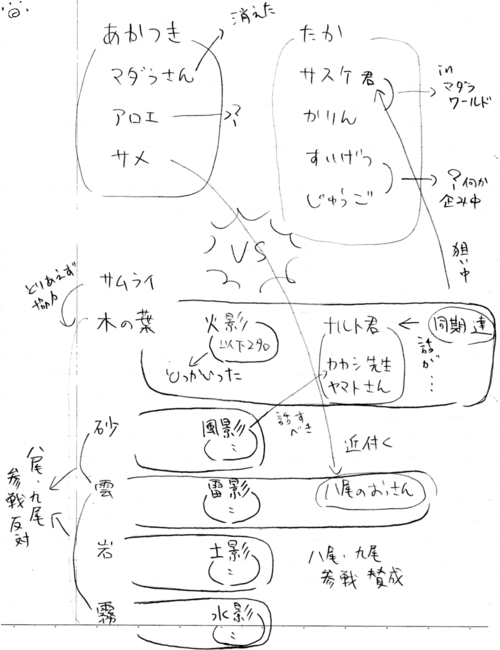 消えた
あかつき
マダラさん
アロエ
?
サメ
たか
サスケ君
in
マダラ
ワールド
かりん
すいげつ
じゅうご
?何か
企み中
VS
狙い中
サムライ
とりあえず
協力
木の葉
火影
以下290
どっかいった
ナルト君
カカシ先生
ヤマトさん
同期達
話が…
砂
風影
話すべき
近付く
雲
雷影
八尾のおっさん
八尾・九尾
参戦反対
岩
土影
八尾・九尾
参戦賛成
霧
水影